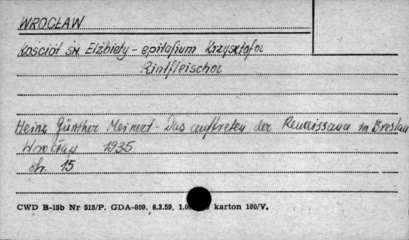 WROCŁAW
Kościół św Elżbiety - epitafium Krzysztofa
Rintfleischa
Heinz Günther Meinert - Das auftreten der Renaissance in Breslau
Wrocław 1935
str. 15
CWD B-15b Nr 515/P. GDA-809, 6.3.59, karton 180/V.